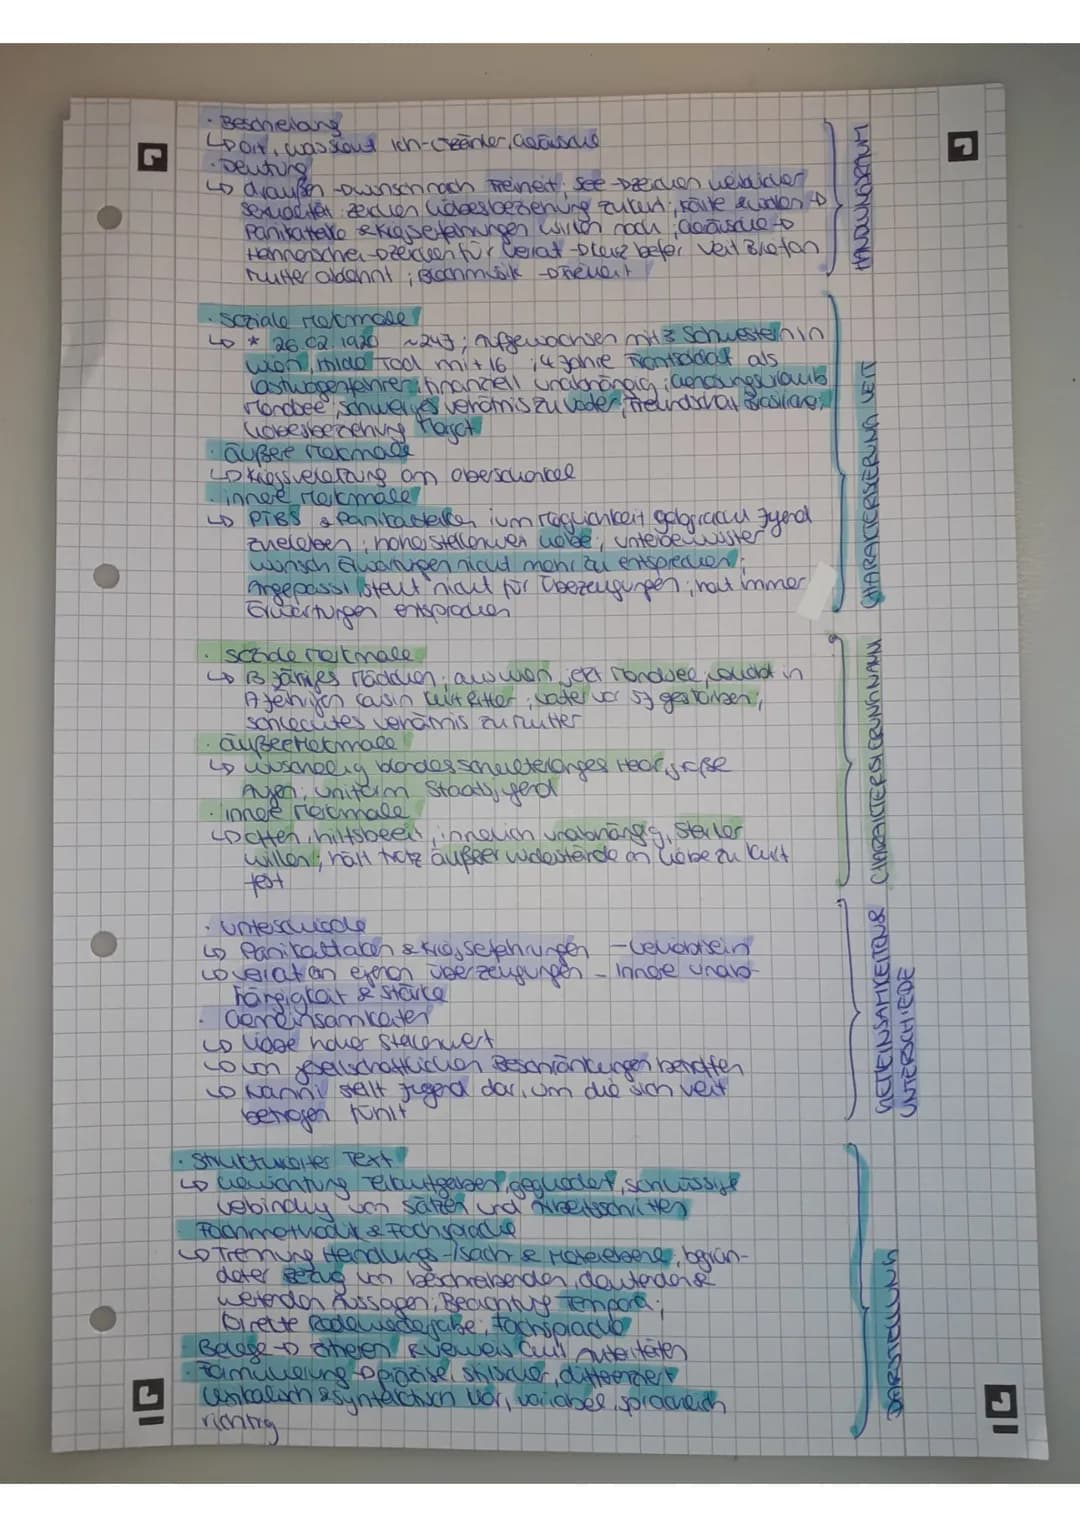 · Beschreibung
↳ Ort, was laut Ich-Erzähler, Geräusche
· Deutung
↳ draußen → Wunsch nach Freiheit; See → Zeichen weiblicher
Sexualität Zeichen Liebesbeziehung Zukunft; Kälte & →
Panikattacke & Kriegserfahrungen wirken nach; Geräusche →
→ Zeichen für Verrat → Veit
Mutter ablehnt; →
HANDLUNGSRAUM
· soziale Merkmale
↳ * 26.02.1920 ~24J; aufgewachsen mit 3 Schwestern in
Wien, Hilde Tod mit 16; 4 Jahre Frontsoldat als
Lastwagenfahrer; finanziell unabhängig; Genesungsurlaub
Mondsee; schwieriges Verhältnis zu Vater; Freundschaft Brasilianer;
Liebesbeziehung Margot
· äußere Merkmale
↳ Kriegsverletzung am Oberschenkel
· innere Merkmale
↳ PTBS & Panikattacken; um Möglichkeit gebracht Jugend
zu erleben; hohe Stellenwert Liebe; unterbewusster
Wunsch Erwartungen nicht mehr zu entsprechen;
Angepasst, steht nicht für Überzeugungen; hat immer
Erwartungen entsprochen
CHARAKTERISIERUNG VEIT
· soziale Merkmale
↳ 13 jähriges Mädchen; aus Wien, jetzt Mondsee; in
Cousin Kurt Ritter; Vater vor 5J gestorben;
schlechtes Verhältnis zu Mutter
· äußere Merkmale
↳ wuscheliges blondes schulterlanges Haar, große
Augen; Uniform Staatsjugend
· innere Merkmale
↳ offen, hilfsbereit, innerlich unabhängig, starker
Willen; hält trotz äußerer Widerstände an Liebe zu Kurt
fest
CHARAKTERISIERUNG NANNI
· Unterschiede
↳ Panikattacken & Kriegserfahrungen – Verliebtsein
↳ Verrat an eigenen Überzeugungen – innere Unab-
hängigkeit & Stärke
· Gemeinsamkeiten
↳ Liebe hoher Stellenwert
↳ von gesellschaftlichen Beschränkungen betroffen
↳ Nanni stellt Jugend dar, um die sich Veit
betrogen fühlt
GEMEINSAMKEITEN &
UNTERSCHIEDE
· strukturierter Text
↳ Gewichtung Teilaufgaben, gegliedert, schlüssige
Verbindung von Sätzen und Arbeitsschritten
Fachmethodik & Fachsprache
↳ Trennung Handlungs-/Sach- & Metaebene, begrün-
deter Bezug von beschreibenden, deutenden &
wertenden Aussagen; Beachtung Tempora;
Direkte Redewiedergabe; Fachsprache
· Belege → Zitieren, Rückverweis auf
· Formulierung → präzise, stilsicher, differenziert
lexikalisch & syntaktisch klar, variabel, sprachlich
richtig
DARSTELLUNG